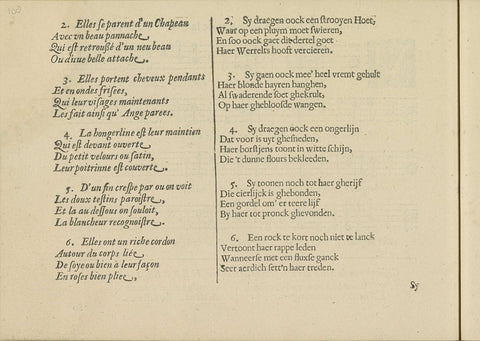 100
2. Elles se parent d'un Chapeau
Avec vn beau pannache,
Qui est retroußé d'un neu beau
Ou d'une belle attache.
3. Elles portent cheveux pendants
Et en ondes frisees,
Qui leur visages maintenants
Les fait ainsy qu' Ange parees.
4. La hongerline est leur maintien
Qui est devant ouverte,
Du petit velours ou satin,
Leur poitrinne est couverte.
5. D'un fin crespe par ou on voit
Les doux testins paroistre,
Et la au dessous on souloit,
La blancheur recognoistre.
6. Elles ont un riche cordon
Autour du corps liée,
De soye ou bien à leur façon
En roses bien pliee,
2. Sy draegen oock een strooyen Hoet,
Waer op een pluym moet swieren,
En soo oock gaet die dertel goet
Haer Werrelts hooft vercieren.
3. Sy gaen oock mee' heel vremt gehult
Haer blonde hayren hanghen,
Al swaderende soet ghekrult,
Op haer ghebloosde wangen.
4. Sy draegen oock een ongerlijn
Dat voor is uyt ghesneden,
Haer borstjens toont in witte schijn,
Die 't dunne flours bekleeden.
5. Sy toonen noch tot haer gherijf
Die cierlijck is ghebonden,
Een gordel om' er teere lijf
By haer tot pronck ghevonden.
6. Een rock te kort noch niet te lanck
Vertoont haer rappe leden
Wanneerse met een fluxse ganck
Seer aerdich sett'n haer treden.
Sy